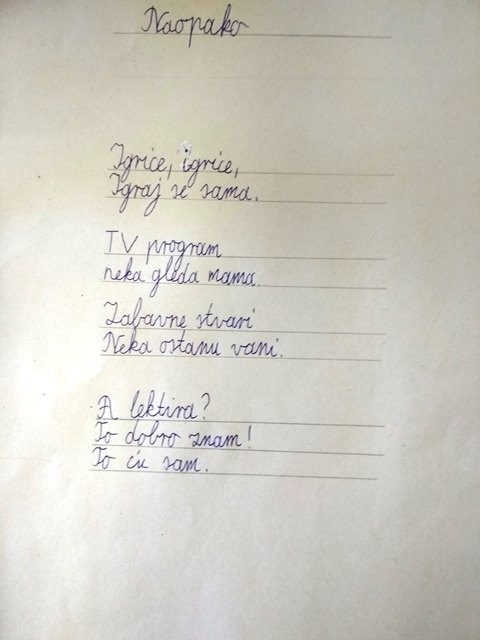 Naopako
Igrice, igrice,
Igraj se sama.
TV program
neka gleda mama.
Zabavne stvari
Neka ostanu vani.
A lektira?
To dobro znam!
To ću sam.